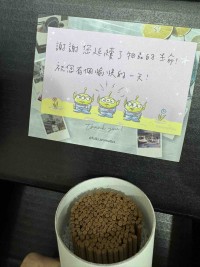 謝謝您延續了物品的生命!
祝您有個愉快的一天!
Thank you